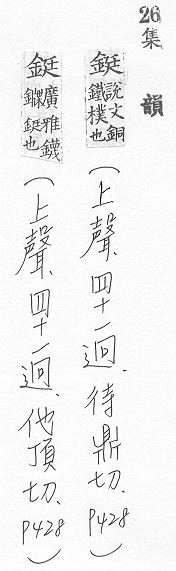 26集 韻
鋌說文銅鐵樸也(上聲.四十一迥.待鼎切.P428)
鋌廣雅鑖鑭鋌也(上聲.四十一迥.他頂切.P428)